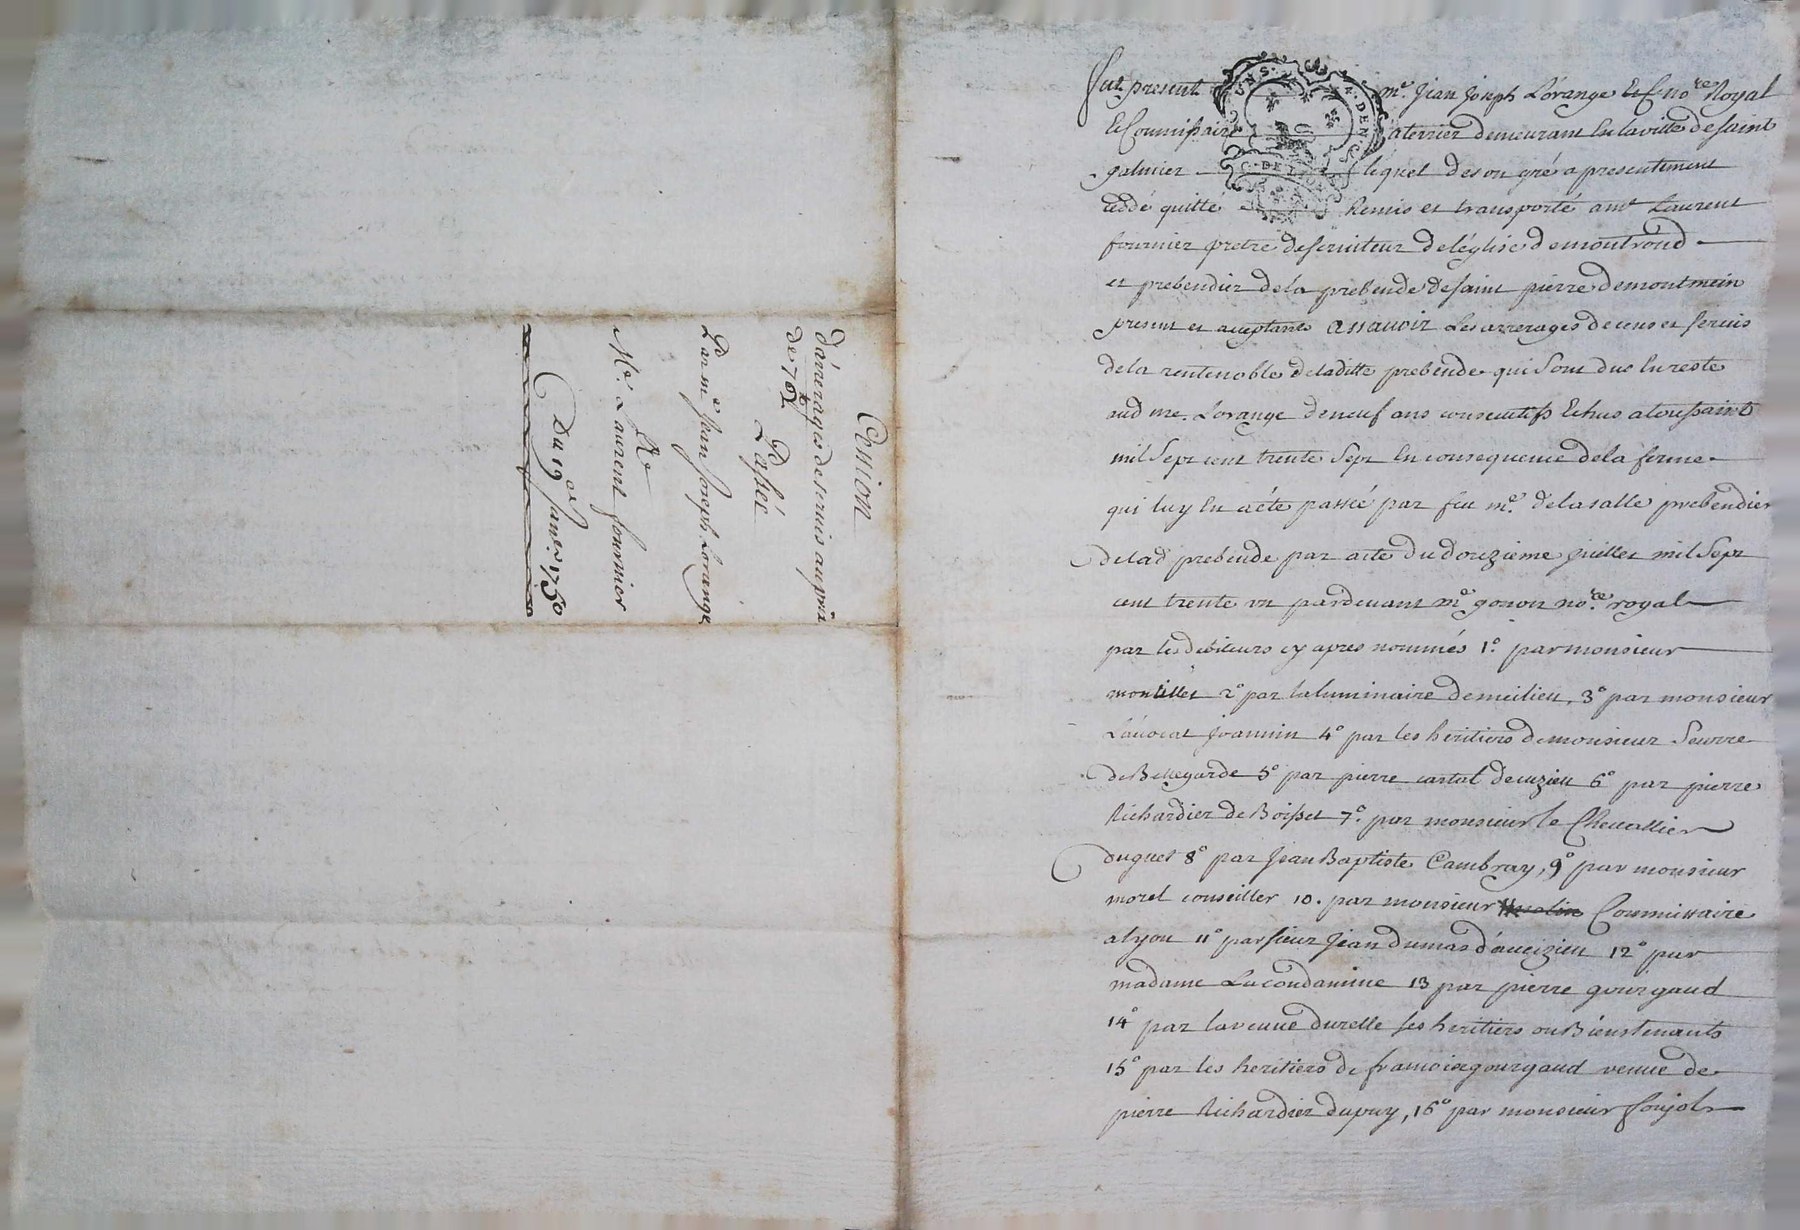 Cession
d'arrerages de servis au prix
de 70 lt
Passée
Par me Jean Joseph Lorange
A
Me. Laurent fournier
Du 19 Janer 1750
fut present me. Jean Joseph Lorange nore Royal
et Commissaire a terrier demeurant en la ville de saint
galmier lequel de son gré a presentement
ceddé quitté Remis et transporté a me Laurent
fournier pretre desserviteur de léglise de montrond
et prebendier de la prebende de saint pierre de montmein
present et aceptant assavoir Les arrerages de cens et servis
de la rente noble de laditte prebende qui sont dus en reste
aud me. Lorange de neuf ans consecutifs Echus a toussaint
mil Sept cent trente Sept En consequence de la ferme
qui luy En a été passée par feu me. de la salle prebendier
de lad prebende par acte du douzieme juillet mil Sept
cent trente un pardevant me gonon nore. royal
par les debiteurs cy apres nommés 1.° par monsieur
montillet 2° par la luminaire de meilieu, 3° par monsieur
L'avocat Joannin 4° par les heritiers de monsieur Seurre
de Bellegarde 5° par pierre cartal de cuzieu 6° par pierre
Richardier de Boisset 7.° par monsieur le Chevallier
duguet 8° par Jean Baptiste Cambray, 9° par monsieur
morel conseiller 10. par monsieur Commissaire
a lyon 11° par sieur Jean dumas d'aveizieu 12° par
madame La condamine 13 par pierre gourgaud
14° par la veuve durelle ses heritiers ou Bienstenants
15° par les heritiers de francoise gourgaud veuve de
pierre Richardier dupuy, 16° par monsieur soujol